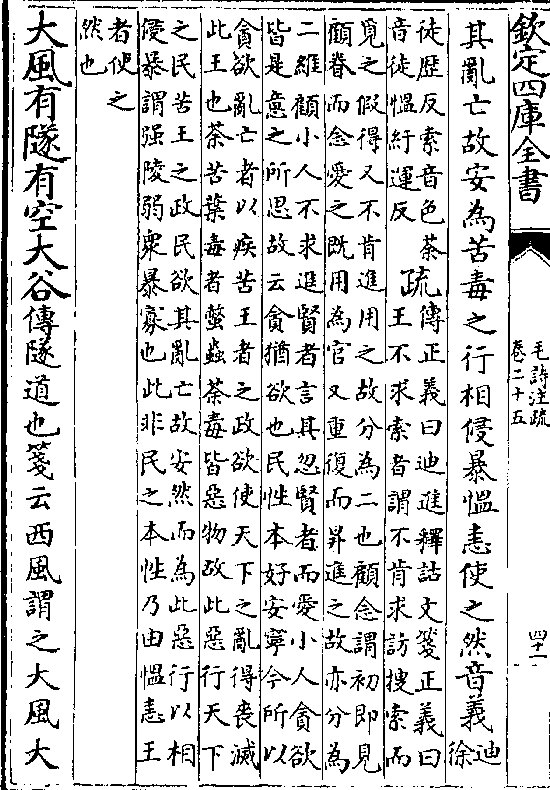 欽定四庫全書
毛詩注疏
卷二十五
四十一
其亂亡故安為苦毒之行相侵暴慍恚使之然音義迪徐
徒歷反索音色荼
音徒慍紆運反
疏傳正義曰迪進釋詁文箋正義曰
王不求索者謂不肯求訪搜索而
覓之假得又不肯進用之故分為二也顧念謂初即見
顧眷而念愛之既用為官又重復而昇進之故亦分為
二維顧小人不求進賢者言其忽賢者而愛小人貪欲
皆是意之所思故云貪猶欲也民性本好安寧今所以
貪欲亂亡者以疾苦王者之政欲使天下之亂得喪滅
此王也荼苦葉毒者螫蟲荼毒皆惡物故此惡行天下
之民苦王之政民欲其亂亡故安然而為此惡行以相
侵暴謂强陵弱衆暴寡也此非民之本性乃由慍恚王
者使之
然也
大風有隧有空大谷傳隧道也箋云西風謂之大風大